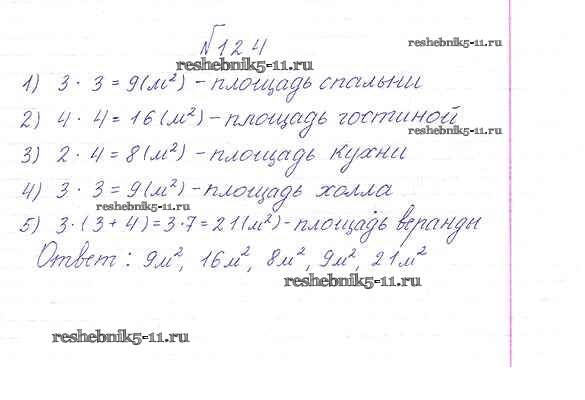 №124
reshebnik5-11.ru
reshebnik5-11.ru
1) 3 · 3 = 9 (м²) - площадь спальни
2) 4 · 4 = 16 (м²) - площадь гостиной
reshebnik5-11.ru
3) 2 · 4 = 8 (м²) - площадь кухни
4) 3 · 3 = 9 (м²) - площадь холла
reshebnik5-11.ru
5) 3 · (3 + 4) = 3 · 7 = 21 (м²) - площадь веранды
Ответ: 9м², 16м², 8м², 9м², 21м²
reshebnik5-11.ru
reshebnik5-11.ru